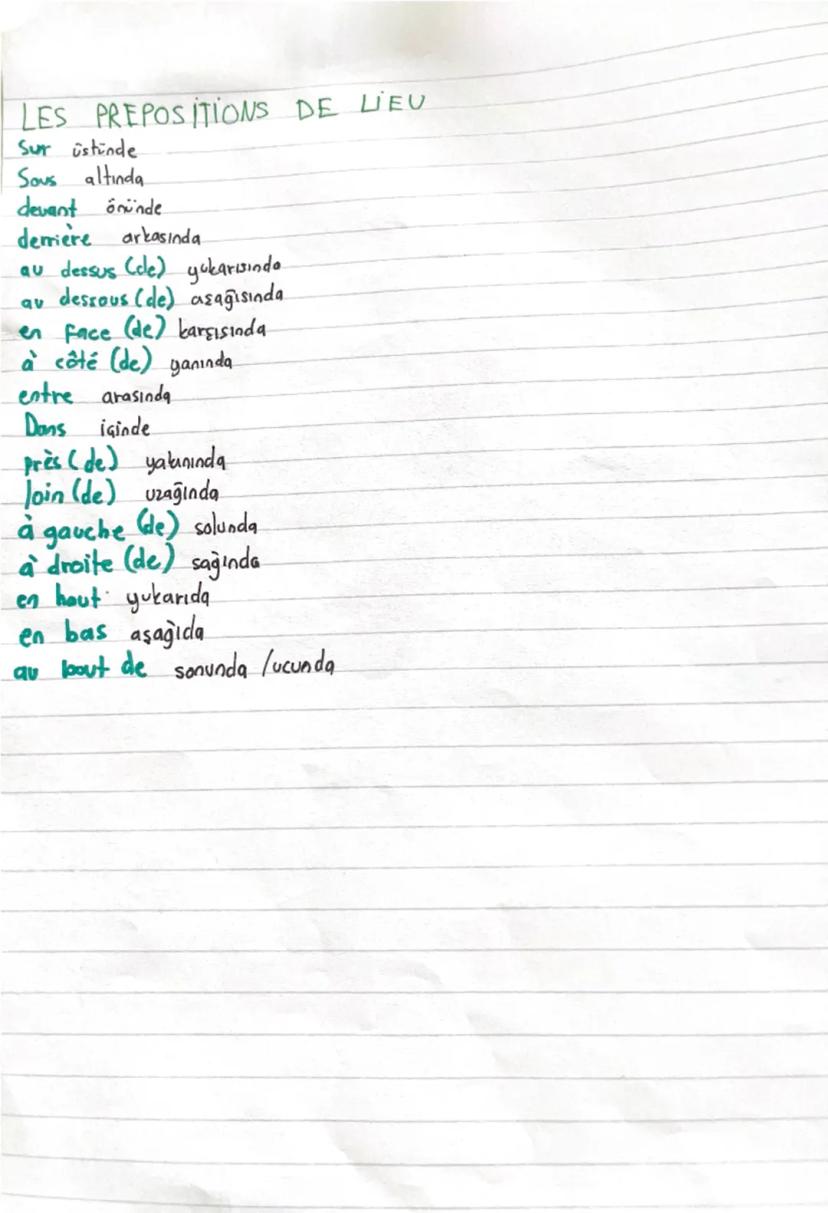 LES PREPOSITIONS DE LiEU
Sur üstünde
Sous altında
devant önünde
derrière arkasında
au dessus (de) yukarısında
au dessous (de) aşağısında
en face (de) karşısında
à côté (de) yanında
entre arasında
Dans içinde
près (de) yakınında
loin (de) uzağında
à gauche (de) solunda
à droite (de) sağında
en haut yukarıda
en bas aşağıda
au bout de sonunda /ucunda